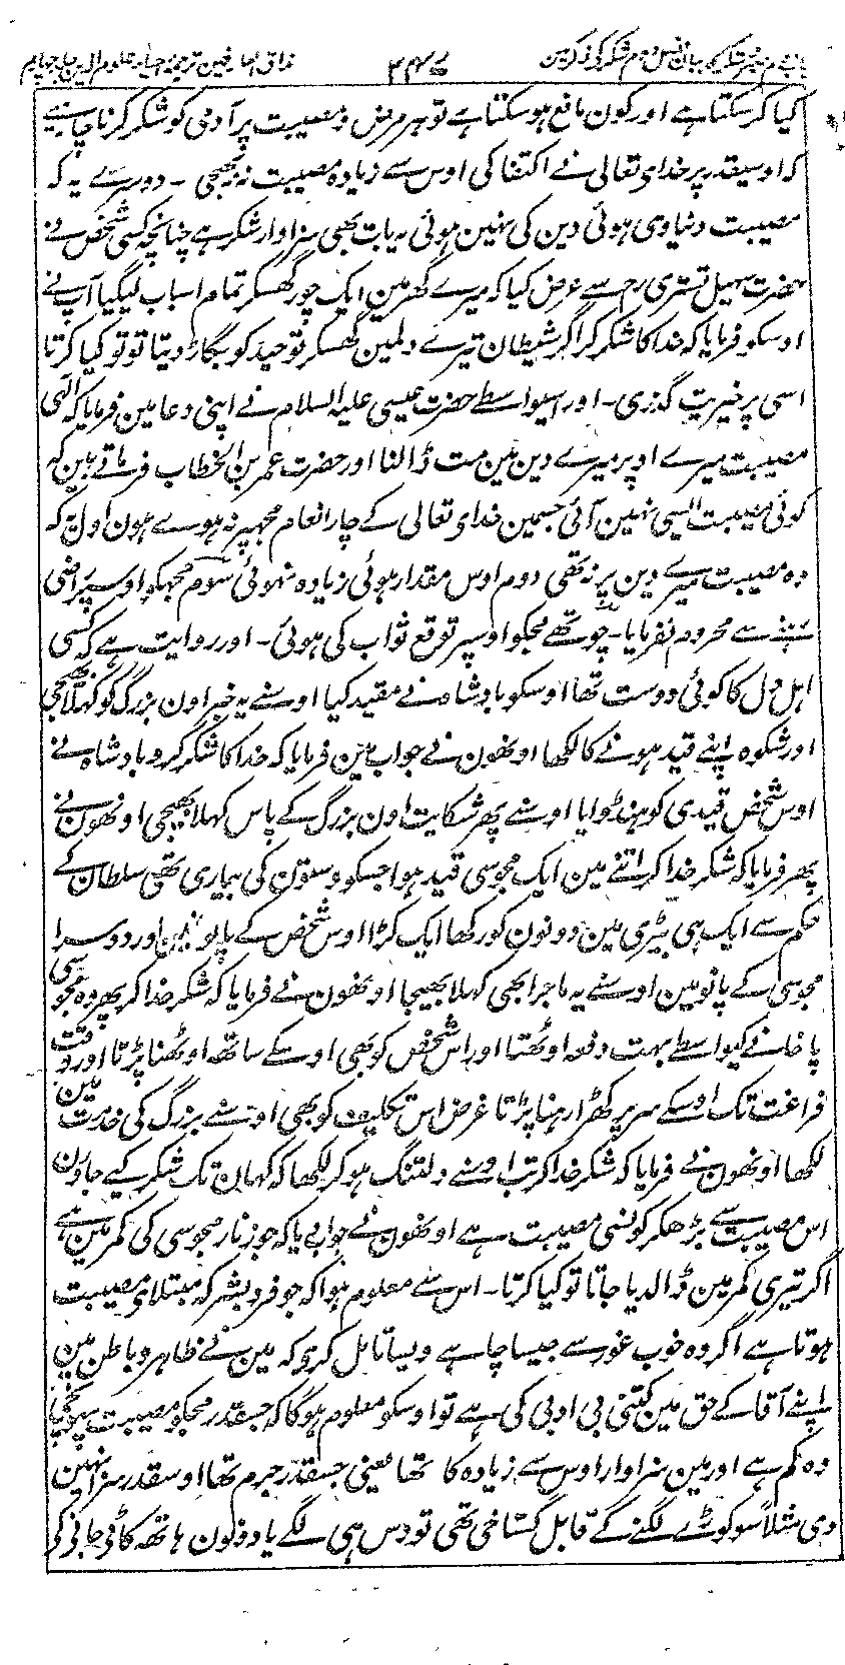 مذاق العارفین ترجمہ احیاء علوم الدین جلد چہارم
۳۴۷
کیا کر سکتا ہے اور کون مانع ہو سکتا ہے تو ہر مرض و مصیبت پر آدمی کو شکر کرنا چاہیے
کہ اوسیقدر پر خدای تعالی نے اکتفا کی اوس سے زیادہ مصیبت نہ بھیجی ۔ دوسرے یہ کہ
مصیبت دنیاوی ہوئی دین کی نہین ہوئی یہ بات بھی سزاوار شکر ہے چنانچہ کسی شخص نے
حضرت سہیل تستری رح سے عرض کیا کہ میرے گھر مین ایک چور گھسکر تمام اسباب لیگیا آپ نے
اوسکو فرمایا کہ خدا کا شکر کر اگر شیطان تیرے دلمین گھسکر توحید کو بگاڑ دیتا تو تو کیا کرتا
اسی پر خیریت گذری ۔ اور اسیواسطے حضرت عیسی علیہ السلام نے اپنی دعا مین فرمایا کہ الٰہی
مصیبت میرے اوپر میرے دین مین مت ڈالنا اور حضرت عمر بن الخطاب فرماتے ہین کہ
کوئی مصیبت ایسی نہین آئی جسمین خدای تعالی کے چار انعام مجھپر نہ ہوے ہون اول یہ کہ
وہ مصیبت میرے دین پر نہ تھی دوم اوس مقدار ہوئی زیادہ نہوئی سوم مجھکو اوسپر راضی
رہنے سے محروم نفرمایا ۔ چوتھے مجکو اوسپر توقع ثواب کی ہوئی ۔ اور روایت ہے کہ کسی
اہل دل کا کوئی دوست تھا اوسکو بادشاہ نے مقید کیا اوسنے یہ خبر اون بزرگ کو کہلا بھیجی
اور شکوہ اپنے قید ہونے کا لکھا اونھون نے جواب مین فرمایا کہ خدا کا شکر کرو بادشاہ نے
اوس شخص قیدی کو پٹوایا اوسنے پھر شکایت اون بزرگ کے پاس کہلا بھیجی اونھون نے
پھر فرمایا کہ شکر خدا کر اتنے مین ایک مجوسی قید ہوا جسکو دستون کی بیماری تھی سلطان کے
حکم سے ایک ہی بیڑی مین دونون کو رکھا ایک کڑا اوس شخص کے پانو مین اور دوسرا
مجوسی کے پانو مین اوسنے یہ ماجرا بھی کہلا بھیجا اونھون نے فرمایا کہ شکر خدا کر پھر وہ مجوسی
پاخانے کیواسطے بہت دفعہ اوٹھتا اور اس شخص کو بھی اوسکے ساتھ اوٹھنا پڑتا اور وقت
فراغت تک اوسکے سر پر کھڑا رہنا پڑتا غرض اس تکلیف کو بھی اوسنے بزرگ کی خدمت مین
لکھا اونھون نے فرمایا کہ شکر خدا کر تب اوسنے دلتنگ ہو کر لکھا کہ کہان تک شکر کیے جاؤن
اس مصیبت سے بڑھکر کونسی مصیبت ہے اونھون نے جواب دیا کہ جو زنار مجوسی کی کمر مین ہے
اگر تیری کمر مین ڈالدیا جاتا تو کیا کرتا ۔ اس سے معلوم ہوا کہ جو فرد بشر کہ مبتلای مصیبت
ہوتا ہے اگر وہ خوب غور سے جیسا چاہیے ویسا تامل کری کہ مین نے ظاہر و باطن مین
اپنے آقا کے حق مین کتنی بی ادبی کی ہے تو اوسکو معلوم ہوگا کہ جسقدر مجکو مصیبت پہونچی
وہ کم ہے اور مین سزاوار اوس سے زیادہ کا تھا یعنی جسقدر جرم تھا اوسقدر سزا نہین
دی مثلاً سو کوڑے لگنے کے قابل گستاخی تھی تو دس ہی لگے یا دونون ہاتھ کاٹی جانی کی